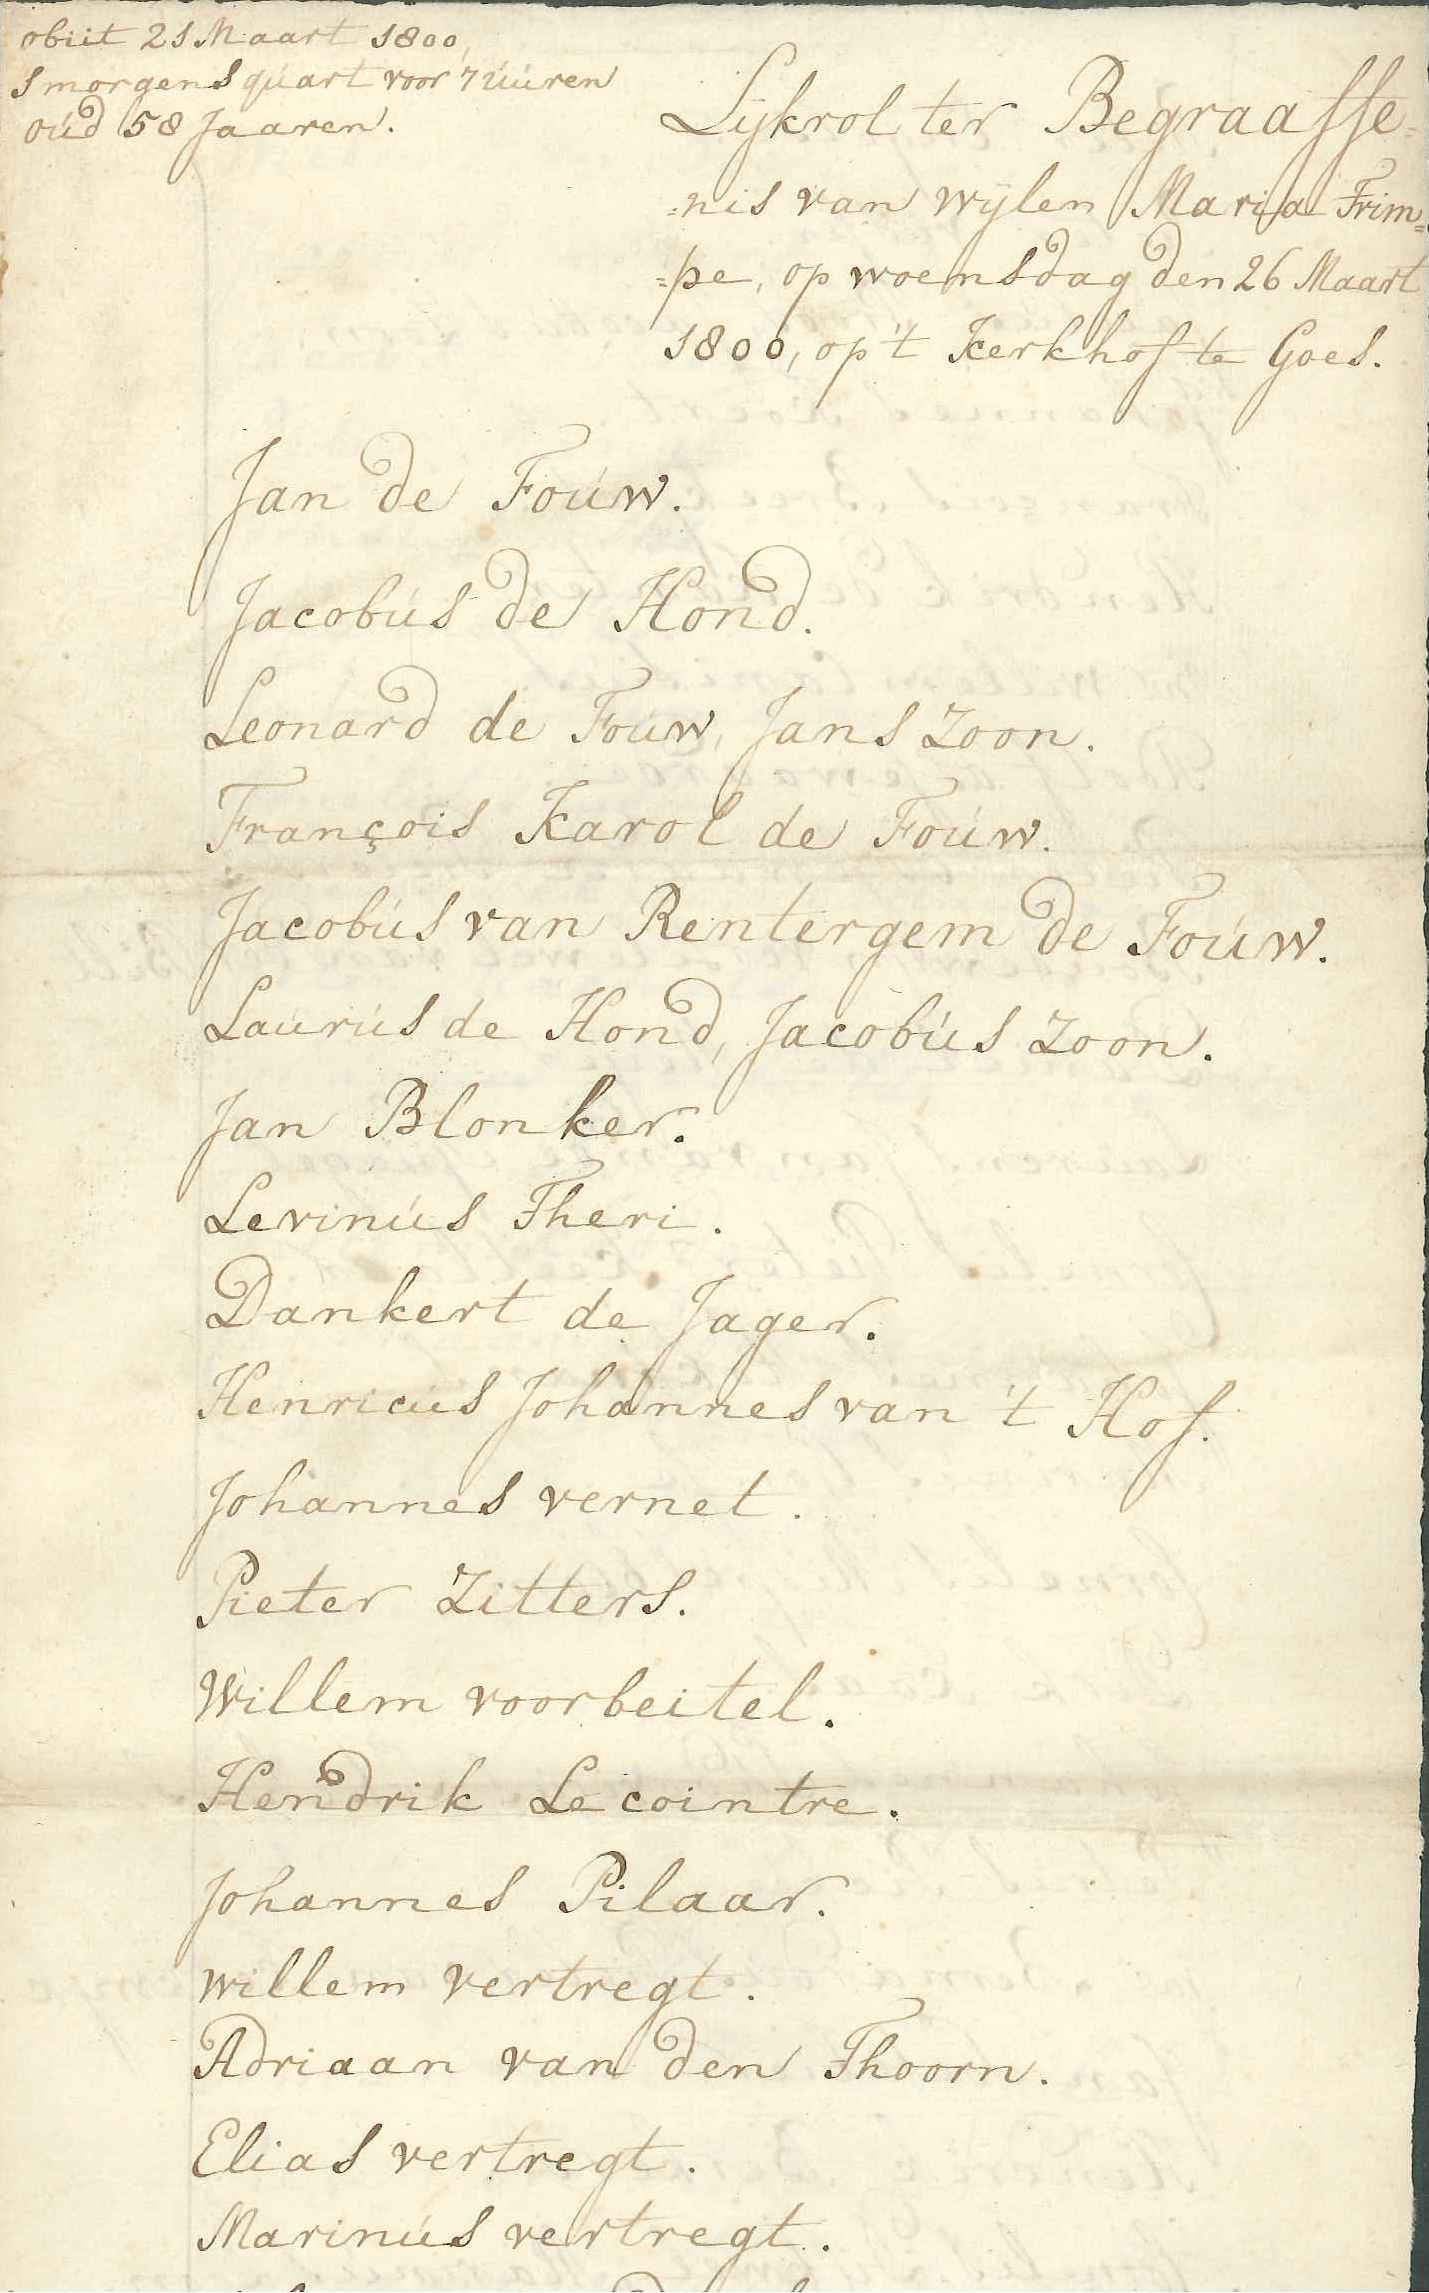 obiit 21 Maart 1800,
smorgens quart voor 7 uúren
oúd 58 Jaaren.
Lijkrol ter Begraaffe=
=nis van wijlen Maria Frim=
=pe, op woensdag den 26 Maart
1800, op 't Kerkhof te Goes.
Jan de Foúw.
Jacobús de Hond.
Leonard de Foúw, Jans Zoon.
François Karol de Foúw.
Jacobús van Rentergem de Foúw.
Laurús de Hond, Jacobús Zoon.
Jan Blonker.
Levinús Theri.
Dankert de Jager.
Henricus Johannes van 't Hof.
Johannes vernet.
Pieter Zitters.
Willem voorbeitel.
Hendrik Le cointre.
Johannes Pilaar.
willem vertregt.
Adriaan van den Thoorn.
Elias vertregt.
Marinús vertregt.